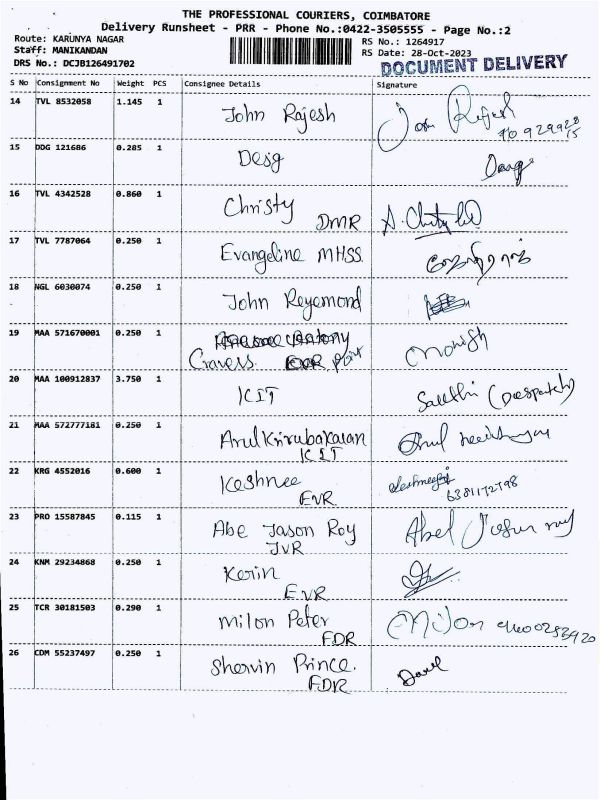 THE PROFESSIONAL COURIERS, COIMBATORE
Delivery Runsheet - PRR - Phone No.:0422-3505555 - Page No.:2
Route: KARUNYA NAGAR
Staff: MANIKANDAN
DRS No.: DCJB126491702
RS No.: 1264917
RS Date: 28-Oct-2023
DOCUMENT DELIVERY
S No Consignment No Weight PCS Consignee Details Signature
14 TVL 8532058 1.145 1 John Rajesh
15 DDG 121686 0.285 1 Desig
16 TVL 4342528 0.860 1 Christy
DMR
17 TVL 7787064 0.250 1 Evangeline MHSS
18 NGL 6030074 0.250 1 John Reyemond
19 MAA 571670001 0.250 1
point
20 MAA 100912837 3.750 1 KIT Sakthi (Despatch)
21 MAA 572777181 0.250 1 Arul Krirubakaran
KIT
22 KRG 4552016 0.600 1 Keshnee
EVR 6381172798
23 PRO 15587845 0.115 1 Abe Jason Roy
JVR
24 KNM 29234868 0.250 1 Kerin
EVR
25 TCR 30181503 0.290 1 Milon Peter Milon
FDR
26 CDM 55237497 0.250 1 Shervin Prince.
FDR